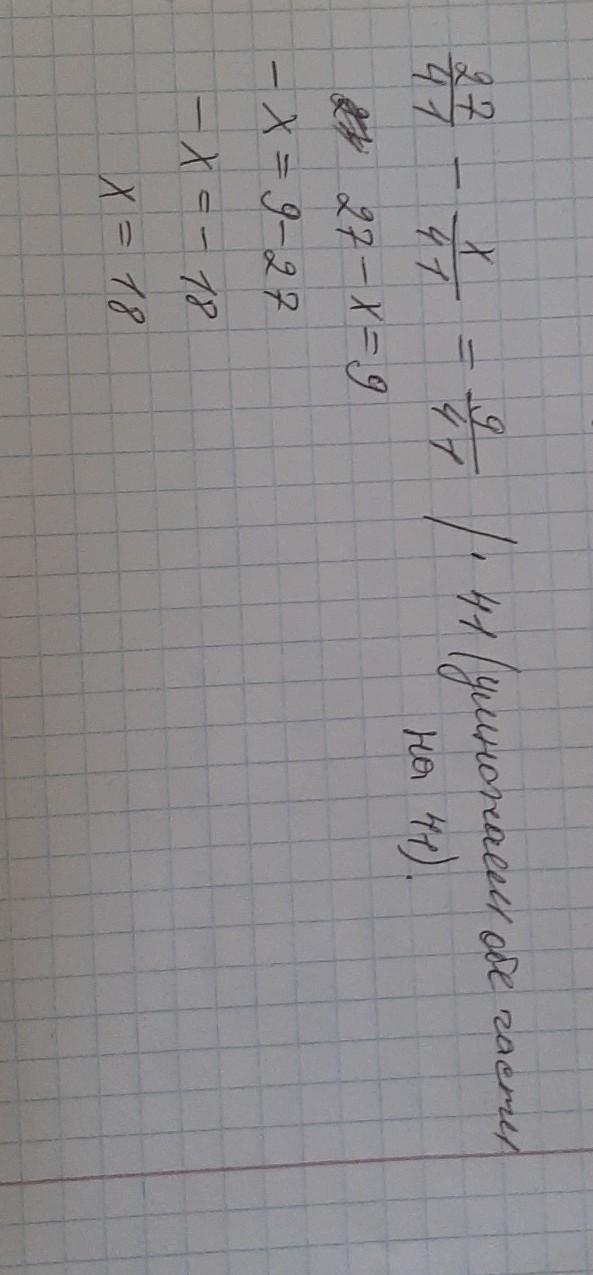 27/41 - x/41 = 9/41 / · 41 (умножаем обе части
на 41).
27 - x = 9
- x = 9 - 27
- x = - 18
x = 18